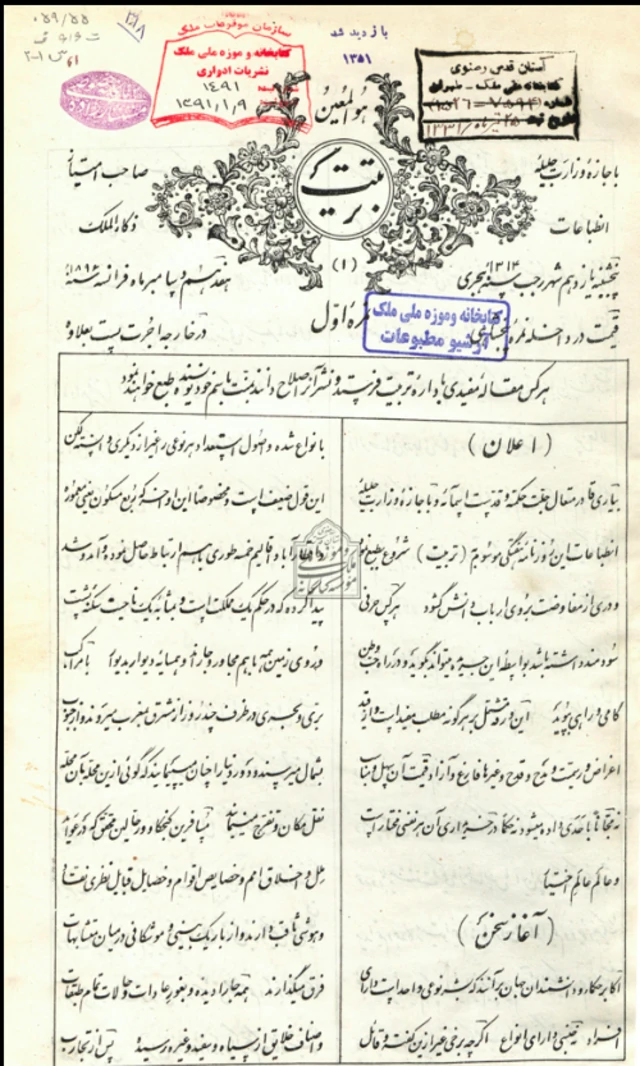 ۰۵۹/۵۵
۲۱۸
سازمان موقوفات ملک
کتابخانه و موزه ملی ملک
نشریات ادواری
۱۴۹۱
۱۳۹۱,۱,۹
بازدید شد
۱۳۵۱
آستان قدس رضوی
کتابخانه ملی ملک - طهران
هو المعین
تربیت
باجازه وزارت جلیله
انطباعات
صاحب امتیاز
ذکاء الملک
(۱)
پنجشنبه یازدهم شهر رجب سنه ۱۳۱۴ هجری
هفدهم دسامبر ماه فرانسه سنه ۱۸۹۶
نمره اول
قیمت در داخله نمره
در خارجه اجرت پست بعلاوه
کتابخانه وموزه ملی ملک
آرشیو مطبوعات
هرکس مقاله مفیدی باداره تربیت فرستد و نشر آنرا صلاح دانند بنسبت باسم خود نویسنده طبع خواهد نمود
(اعلان)
بیاری قادر متعال جلت حکمته و قدست اسمائه و باجازه وزارت جلیله
انطباعات این روزنامه هفتگی موسوم به (تربیت) شروع بطبع نمود
و دری از مفاوضت بروی ارباب دانش گشود هرکس حرفی
سودمند داشته باشد بواسطه این جریده میتواند بگوید و در راه حب وطن
کامی و راهی بپوید این ورقه مشتمل بر هرگونه مطلب مفید است و از قید
اغراض و ریبت و مدح و قدح و غیرها فارغ و آزاد قیمت آن سهل و مناسب
نه مجاناً باحدی داده میشود نه کسی در خریداری آن هر نفسی مختار است
و عالم عالم اختیار
(آغاز سخن)
اکابر حکما و دانشمندان جهان برآنند که بشر نوعی واحد است دارای
افراد نه جنسی دارای انواع اگرچه برخی غیر ازین گفته و قائل
بانواع شده و اصول استعداد هر نوعی را غیر از دیگری دانسته لکن
این قول ضعیف است و مخصوصاً این اواخر که ربع مسکون یعنی معموره
و اقالیم خمسه طوری باهم ارتباط حاصل نموده و آمد و شد
پیدا کرده که در حکم یک مملکت است و بمثابه یک ناحیت سکنه پشت
و روی زمین همه باهم مجاور و جار و همسایه دیوار بدیوار با مراکب
بری و بحری در ظرف چند روز از مشرق بمغرب میروند و از جنوب
بشمال میرسند و دور دنیا را چنان میپیمایند که گوئی ازین محله بآن محله
نقل مکان و تفرج مینمایند مسافرین کنجکاو و رحالین محقق که در عوائد
ملل و اخلاق امم و خصایص اقوام و خصایل قبایل نظری نقاد
و هوشی ثاقب دارند و از باریک بینی و موشکافی در میان متشابهات
فرق میگذارند همه جا را دیده و بغور عادات و حالات تمام طبقات
و اصناف خلایق از سیاه و سفید و غیره رسیده پس از تجارب